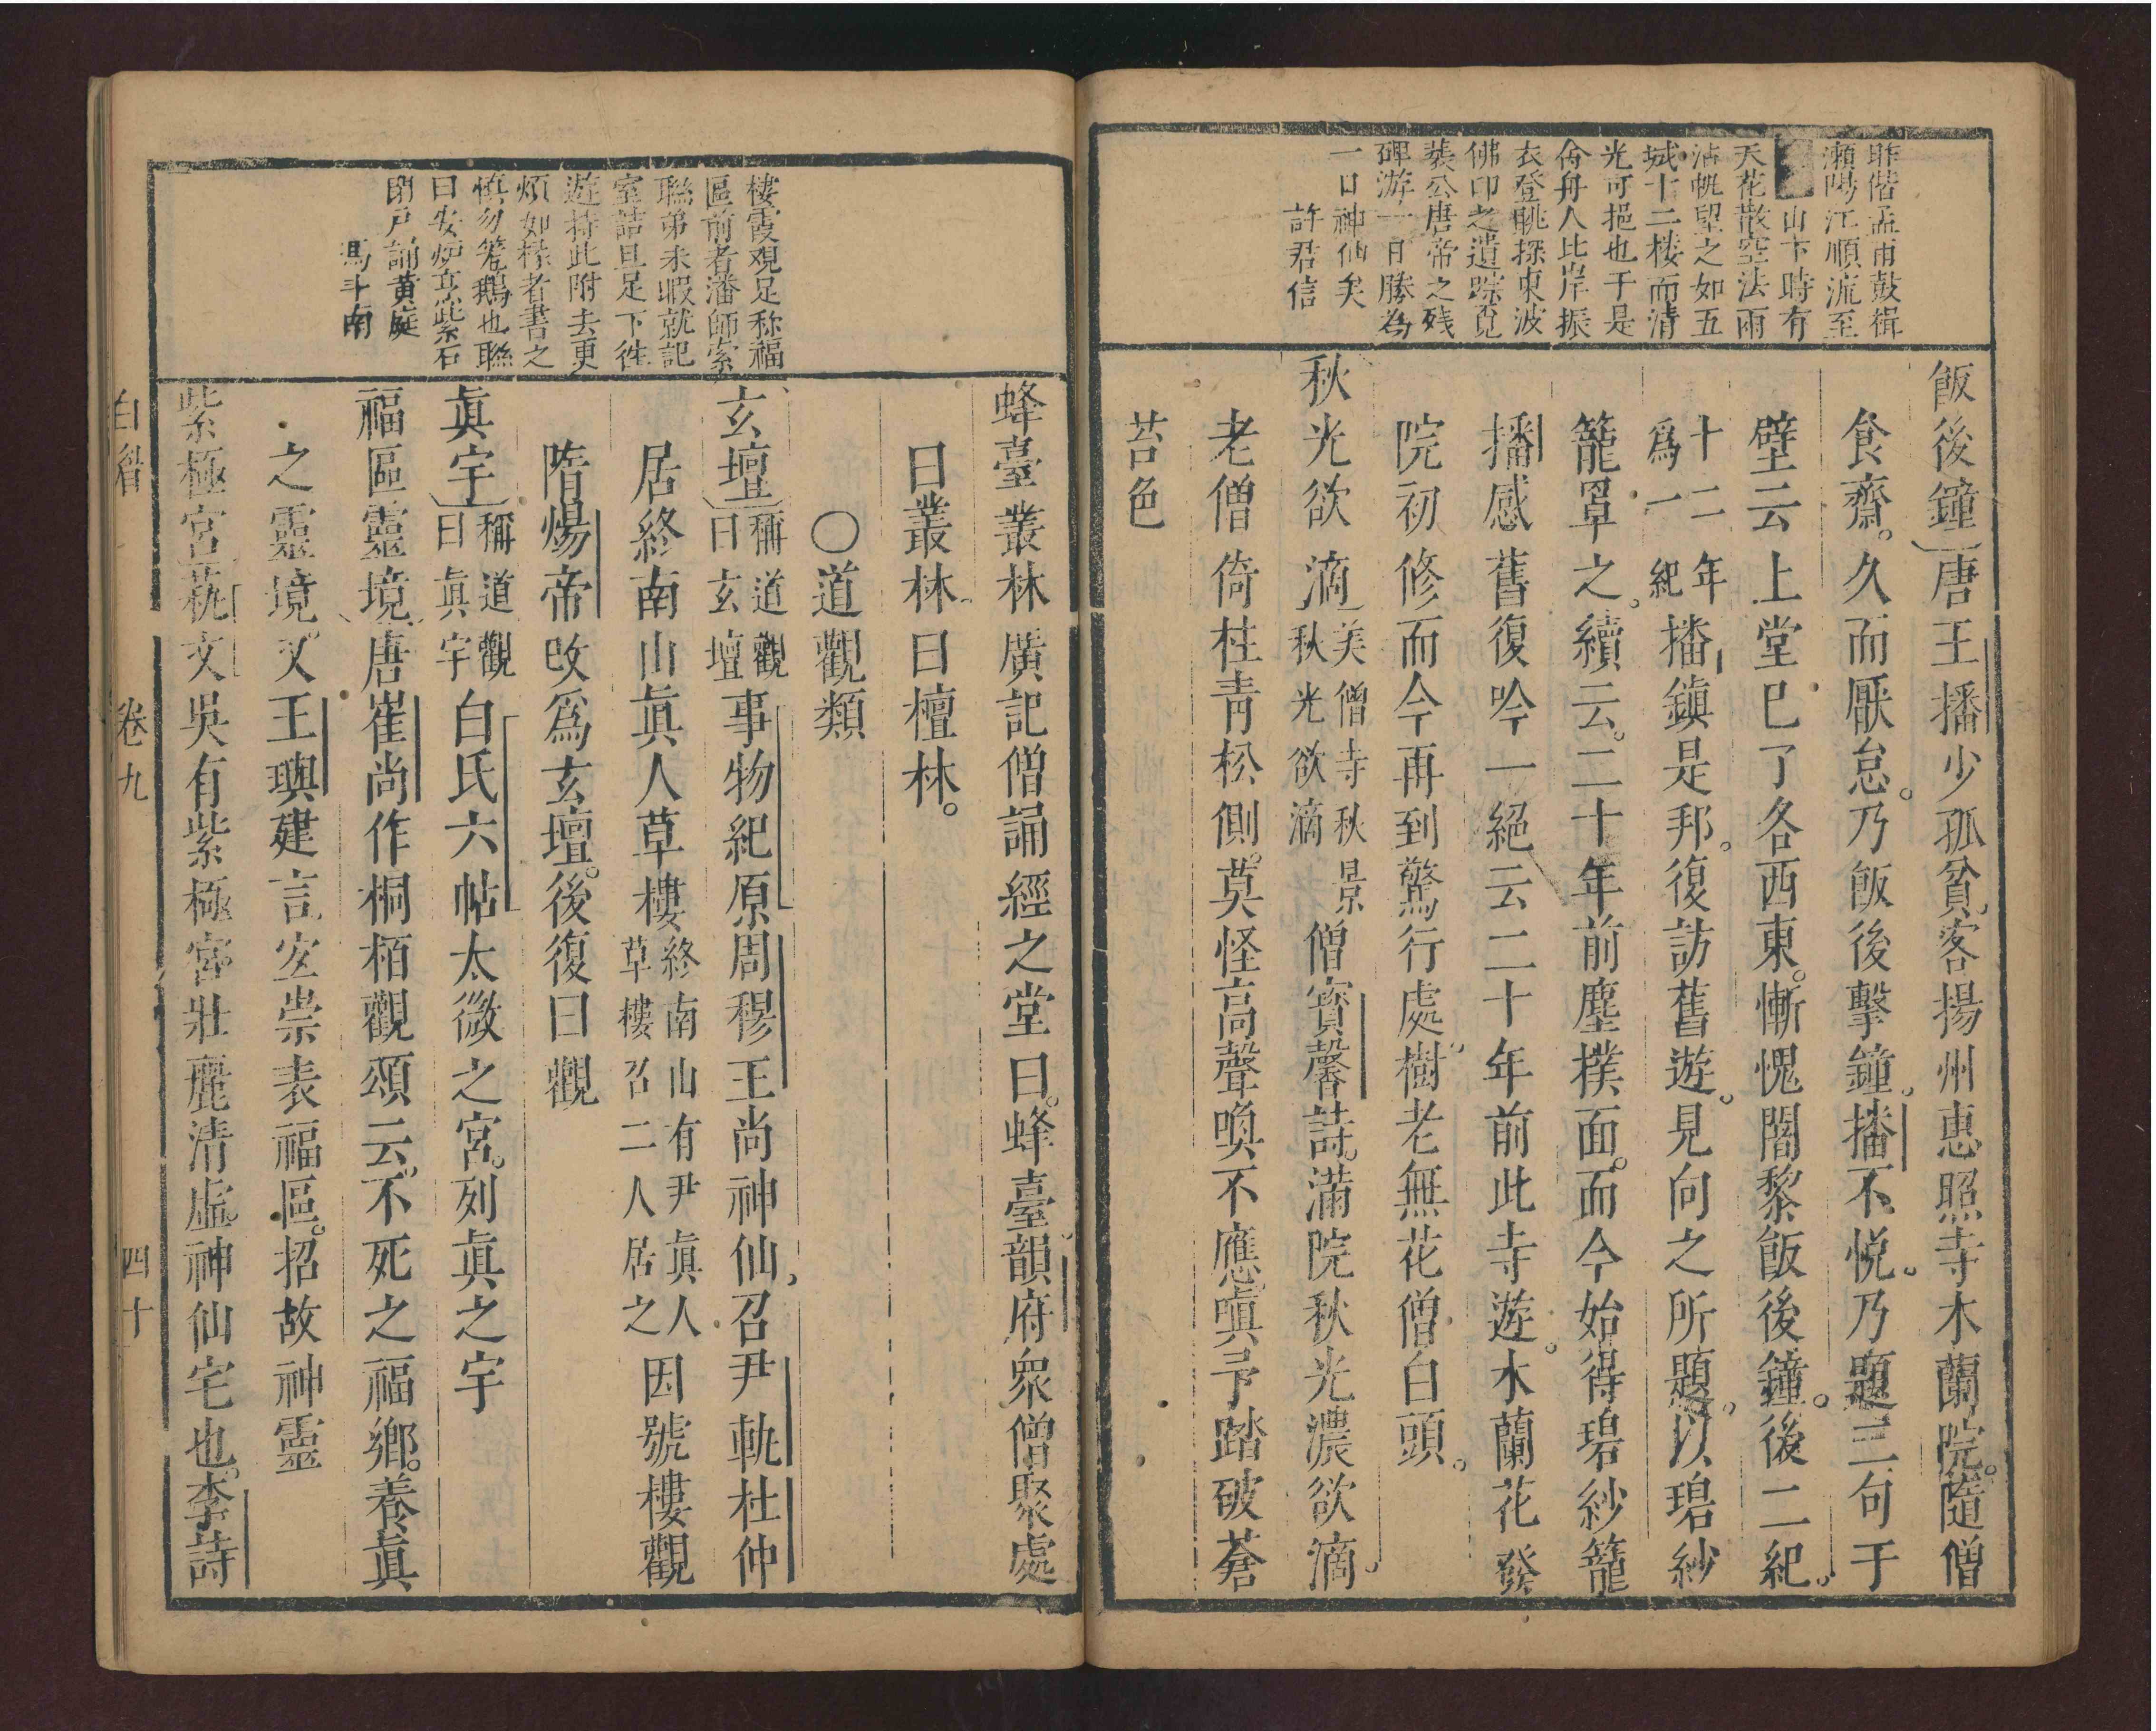 昨偕孟甫鼓楫
瀬陽江順流至
山卞時有
天花散空法雨
沾帆望之如五
城十二楼而清
光可挹也于是
舍舟人比岸振
衣登眺探東波
佛印之遺踪覓
裴公唐帝之残
碑游一日勝為
一日神仙矣
許君信
飯後鐘唐王播少孤貧客揚州惠照寺木蘭院隨僧
食齋久而厭怠乃飯後擊鐘播不悅乃題二句于
壁云上堂巳了各西東慚愧闍黎飯後鐘後二紀
十二年
爲一紀
播鎮是邦復訪舊遊見向之所題以碧紗
籠罩之續云二十年前塵撲面而今始得碧紗籠
播感舊復吟一絕云二十年前此寺遊木蘭花發
院初修而今再到驚行處樹老無花僧白頭
秋光欲滴
美僧寺秋景
秋光欲滴
僧寶馨詩滿院秋光濃欲滴
老僧倚柱青松側莫怪高聲喚不應嗔予踏破蒼
苔色
棲霞观足称福
區前者潘師索
聯弟未暇就記
室詰旦足下徃
遊持此附去更
煩如椽者書之
慎勿笼鵝也聯
曰安炉烹紫石
閉户誦黄庭
馮斗南
蜂臺叢林廣記僧誦經之堂曰蜂臺韻府衆僧聚處
曰叢林曰檀林
〇道觀類
玄壇
稱道觀
曰玄壇
事物紀原周穆王尚神仙召尹軌杜仲
居終南山眞人草樓
終南山有尹眞人
草樓召二人居之
因號樓觀
隋煬帝改爲玄壇後復曰觀
眞宇
稱道觀
曰眞宇
白氏六帖太微之宮列眞之宇
福區靈境唐崔尚作桐栢觀頌云不死之福鄉養眞
之靈境又王璵建言宐崇表福區招故神靈
紫極宮蓻文吳有紫極宮壯麗清虛神仙宅也李詩
白眉
卷九
四十